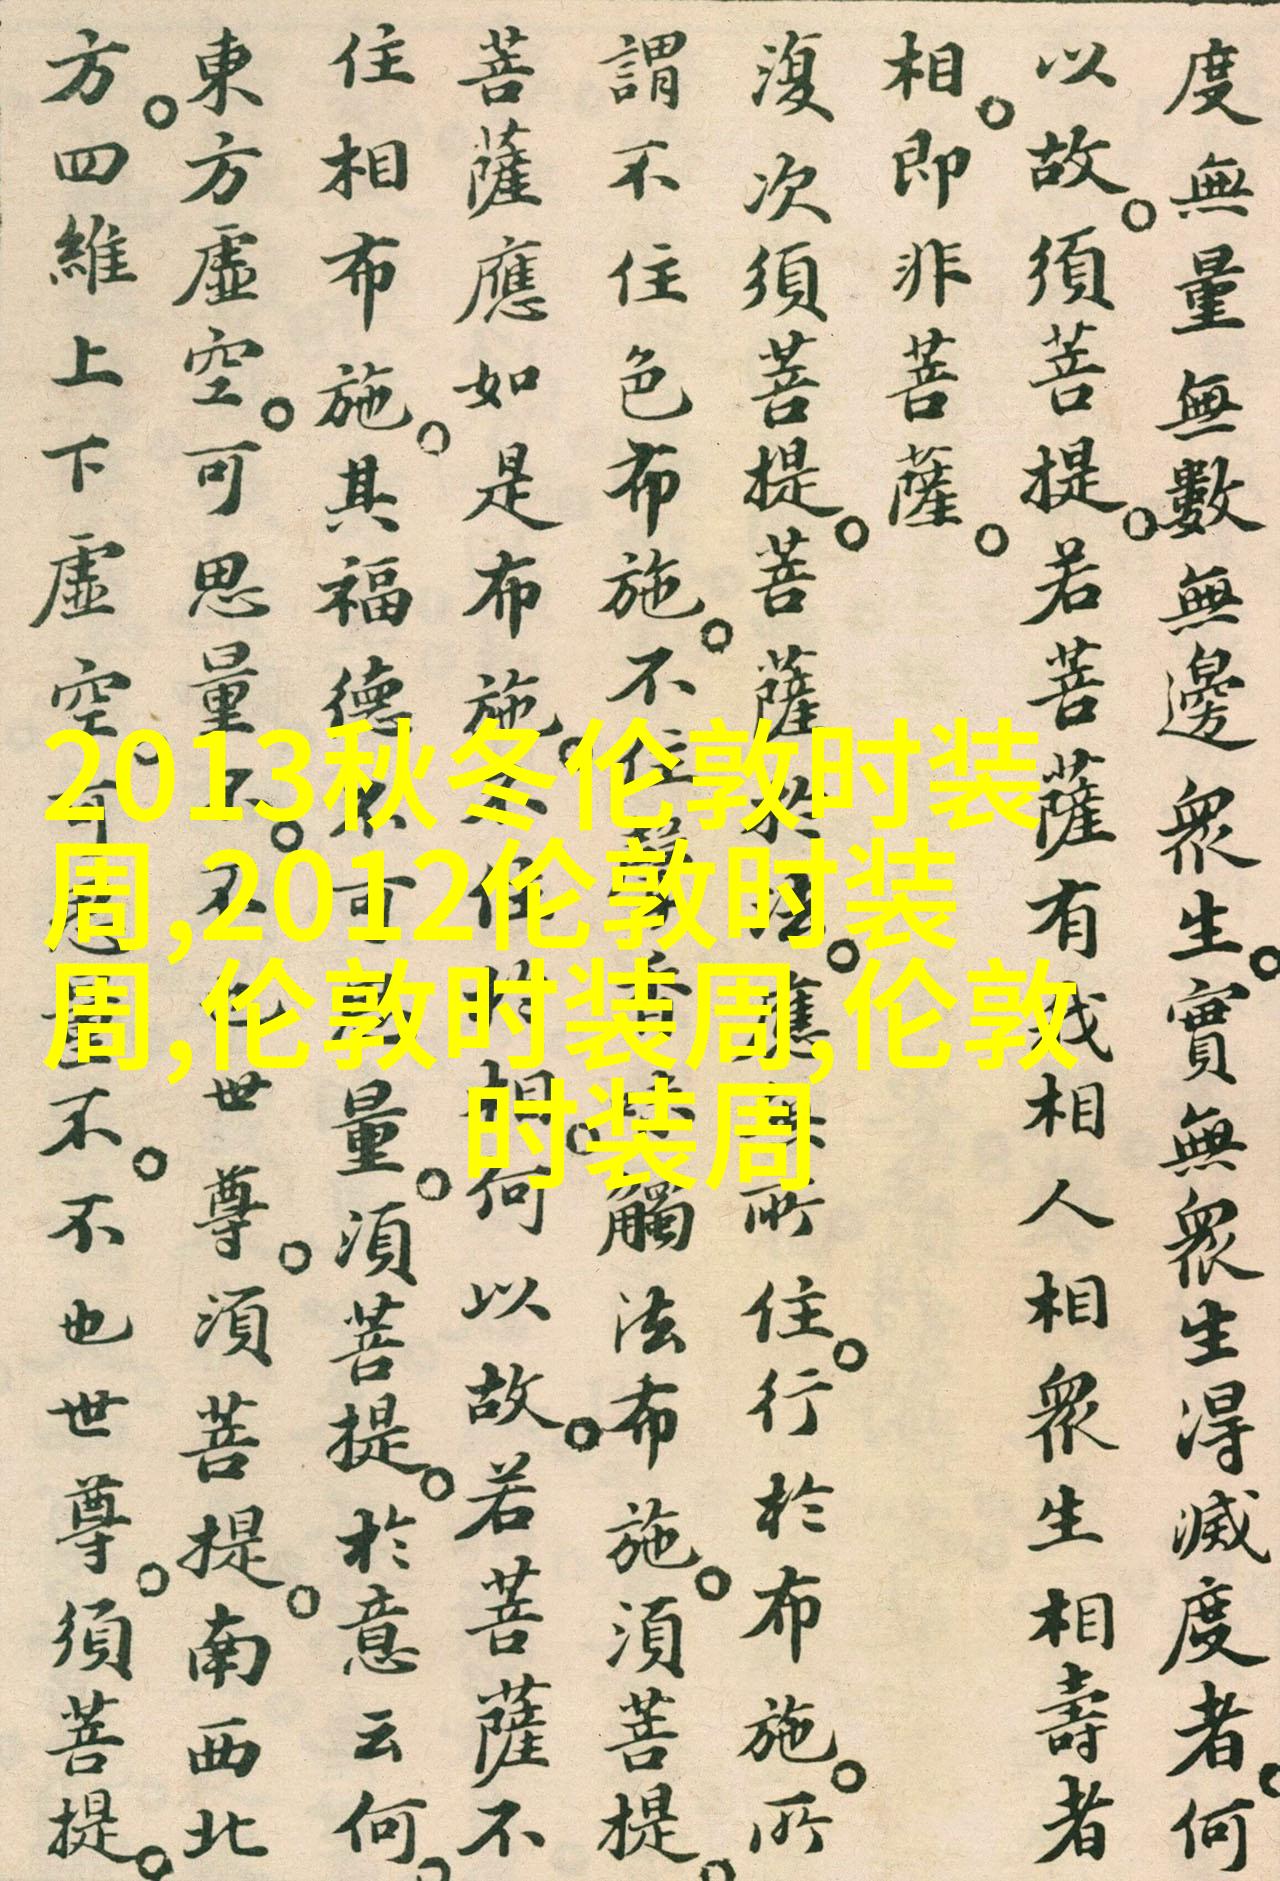 度無量無數無邊眾生。實無眾生得滅度者。何
以故。須菩提。若菩薩有我相人相眾生相壽者
相。即非菩薩。
復次須菩提。菩薩於法。應無所住。行於布施。所
謂不住色布施。不住聲香味觸法布施。須菩提。
菩薩應如是布施。不住於相。何以故。若菩薩不
住相布施。其福德不可思量。須菩提。於意云何。
東方虛空。可思量不。不也世尊。須菩提。南西北
方。四維上下虛空。可思量不。不也世尊。須菩提。
2013秋冬伦敦时装
周,2012伦敦时装
周,伦敦时装周,伦敦
时装周